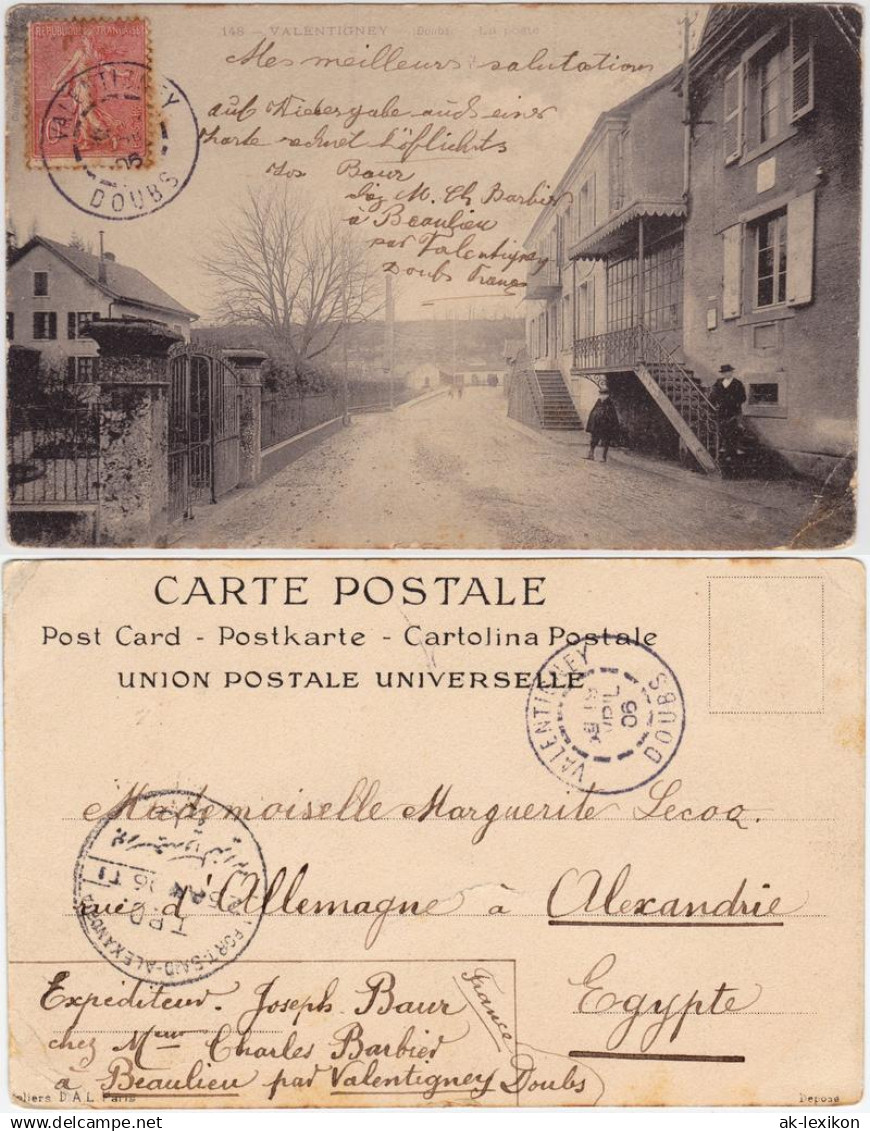 148 – VALENTIGNEY (Doubs) La poste
REPUBLIQUE FRANÇAISE
VALENTIGNEY
06
DOUBS
Mes meilleurs salutations
auf Wiedergabe auch einer
Karte rechnet höflichsts
Jos Baur
chez M. Ch Barbier
à Beaulieu
par Valentigney
Doubs France
CARTE POSTALE
Post Card - Postkarte - Cartolina Postale
UNION POSTALE UNIVERSELLE
VALENTIGNEY
18
AVRIL
06
DOUBS
Mademoiselle Marguerite Lecoq.
rue d'Allemagne à Alexandrie
Egypte
T.P.O
PORT-SAID-ALEXANDRIA
Expéditeur. Joseph Baur
chez Mme Charles Barbier
à Beaulieu par Valentigney Doubs
France
D.A.L. Paris
Déposé
ak-lexikon